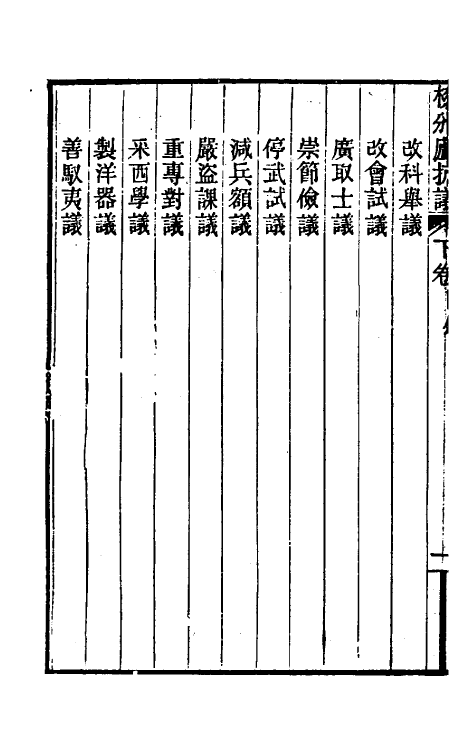 校邠廬抗議 下卷目
改科舉議
改會試議
廣取士議
崇節儉議
停武試議
減兵額議
嚴盜課議
重專對議
采西學議
製洋器議
善馭夷議
一